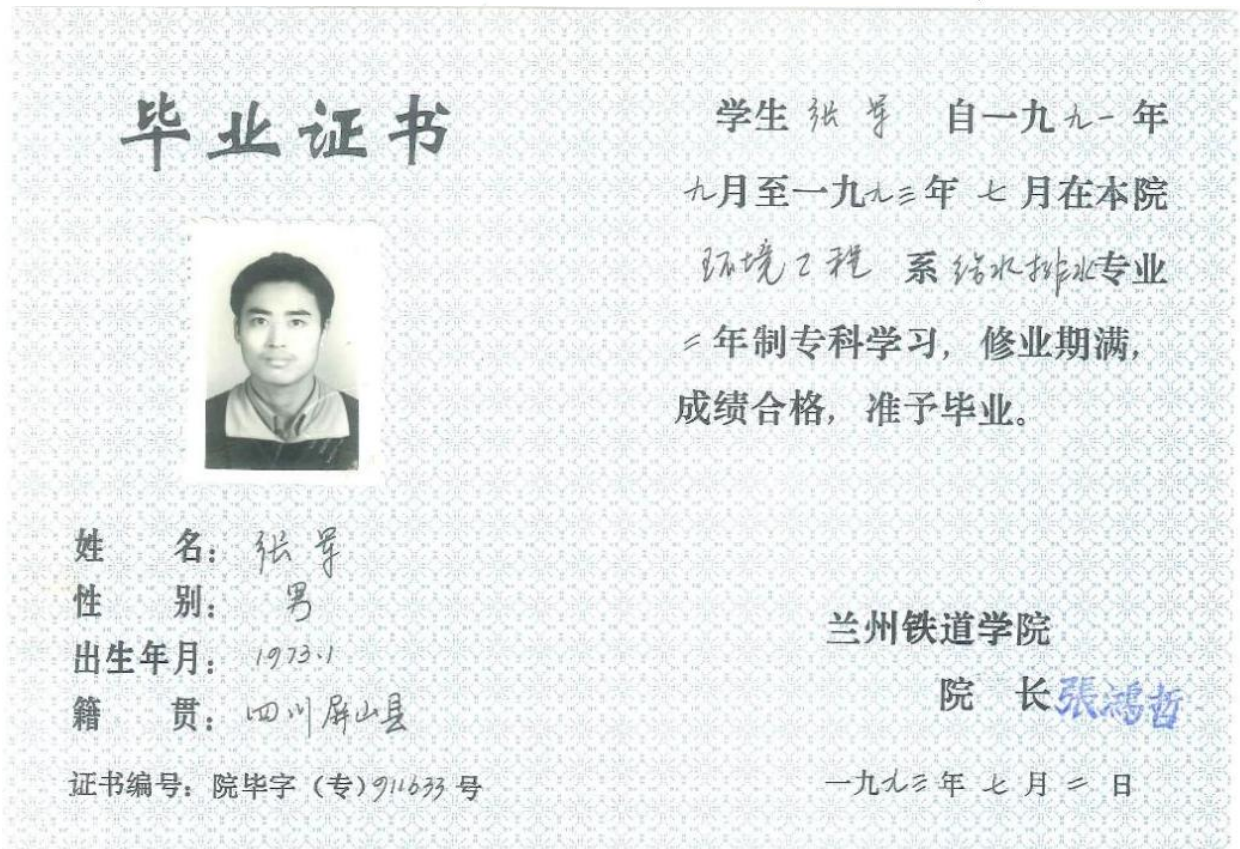 毕业证书
姓 名：张军
性 别：男
出生年月：1973.1
籍 贯：四川屏山县
证书编号：院毕字（专）911633号
学生 张军 自一九九一年
九月至一九九三年 七月在本院
环境工程 系 给水排水专业
二年制专科学习，修业期满，
成绩合格，准予毕业。
兰州铁道学院
院 长 張鴻哲
一九九三年 七月二日